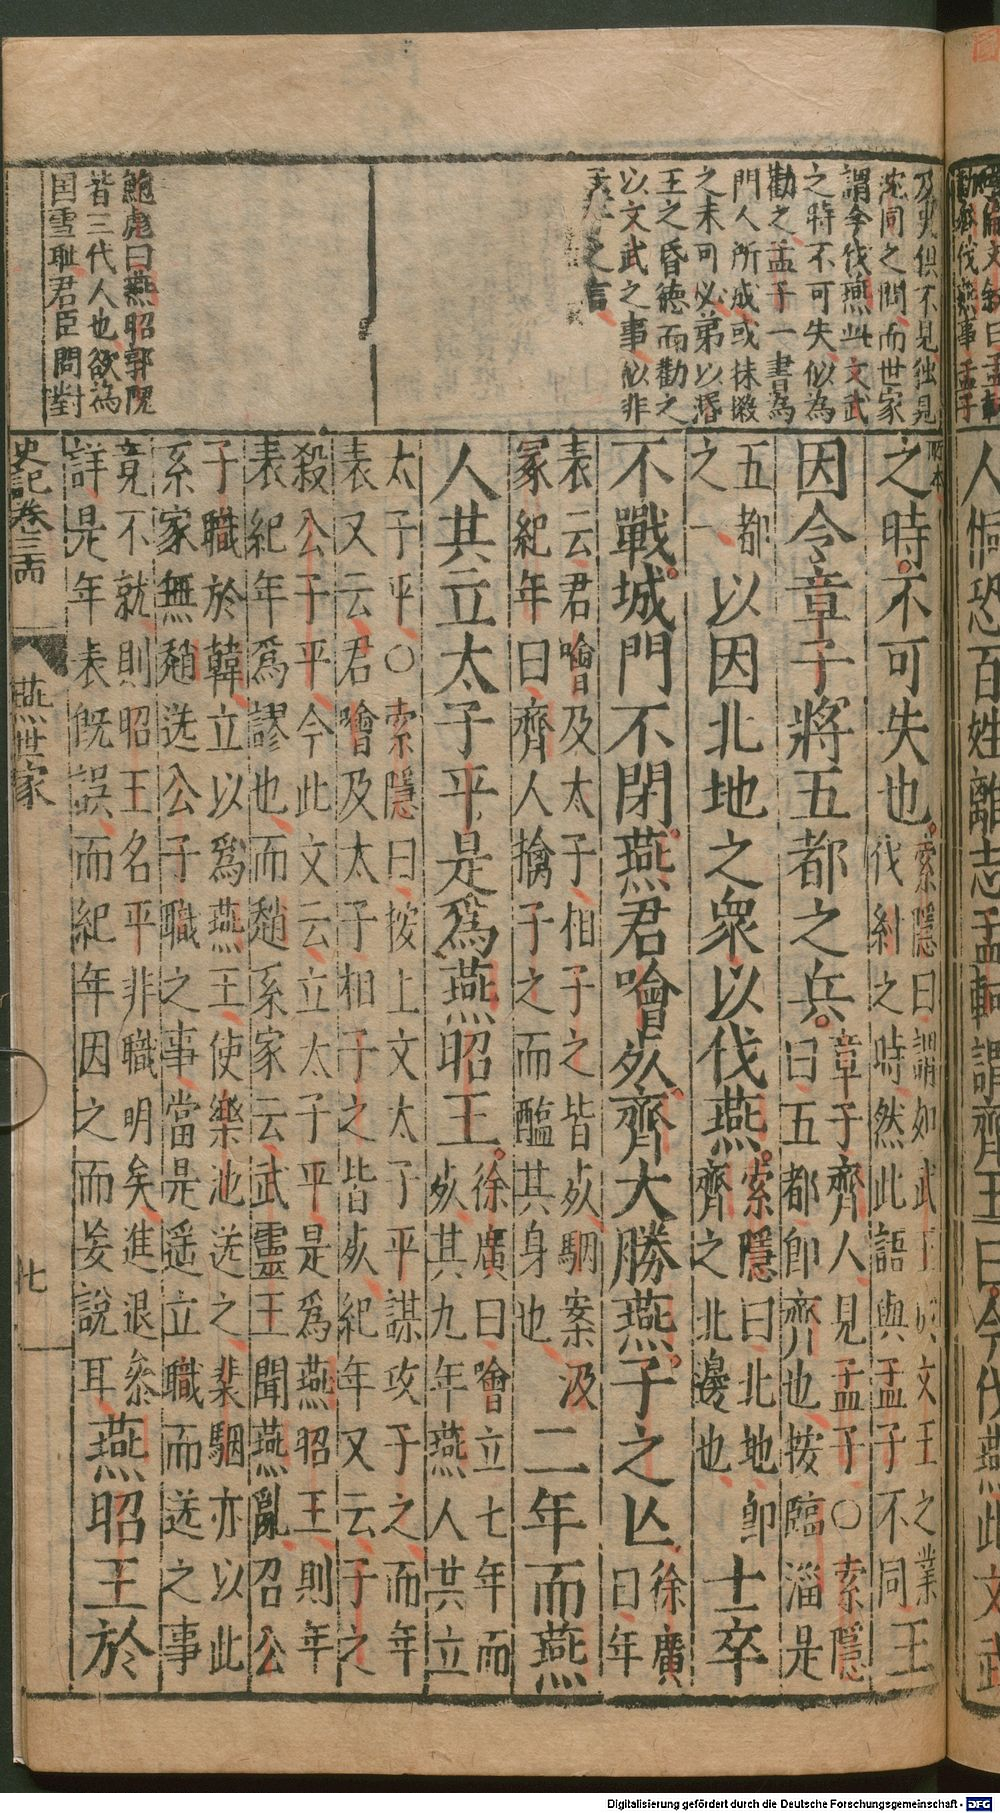 人恫恐百姓離志孟軻謂齊王曰今伐燕此文武
及史但不見独見
沈同之問而世家
謂今伐燕此文武
之時不可失似為
勸之孟子一書為
門人所成或抹摋
之未可必弟以湣
王之昏德而勸之
以文武之事似非
孟子之言
鮑彪曰燕昭郭隗
皆三代人也欲為
国雪耻君臣問對
之時不可失也索隱曰謂如武王成文王之業伐紂之時然此語與孟子不同王
因令章子將五都之兵章子齊人見孟子○索隱曰五都即齊也按臨淄是
五都之一以因北地之衆以伐燕索隱曰北地即齊之北邊也士卒
不戰城門不閉燕君噲死齊大勝燕子之亾徐廣曰年
表云君噲及太子相子之皆死駰案汲冢紀年曰齊人擒子之而醢其身也二年而燕
人共立太子平是爲燕昭王徐廣曰噲立七年而死其九年燕人共立
太子平○索隱曰按上文太子平謀攻子之而年
表又云君噲及太子相子之皆死紀年又云子之
殺公子平今此文云立太子平是爲燕昭王則年
表紀年爲謬也而趙系家云武靈王聞燕亂召公
子職於韓立以爲燕王使樂池送之裴駰亦以此
系家無趙送公子職之事當是遥立職而送之事
竟不就則昭王名平非職明矣進退叅
詳是年表既誤而紀年因之而妄說耳燕昭王於
史記卷三十四 燕世家
Digitalisierung gefördert durch die Deutsche Forschungsgemeinschaft - DFG